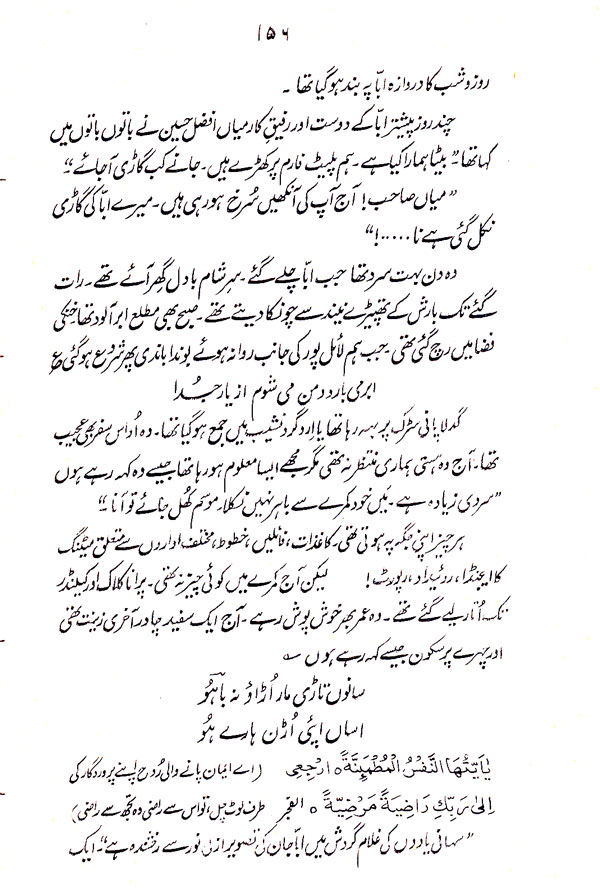 ۱۵۶
روز و شب کا دروازہ ابّا پہ بند ہو گیا تھا ۔
چند روز پیشتر ابّا کے دوست اور رفیقِ کار میاں افضل حسین نے باتوں باتوں میں
کہا تھا ” بیٹا ہمارا کیا ہے ۔ ہم پلیٹ فارم پر کھڑے ہیں ۔ جانے کب گاڑی آ جائے “
” میاں صاحب ! آج آپ کی آنکھیں سُرخ ہو رہی ہیں ۔ میرے ابّا کی گاڑی
نکل گئی ہے نا ..... ! “
وہ دن بہت سرد تھا جب ابّا چلے گئے ۔ سرِ شام بادل گھر آئے تھے ۔ رات
گئے تک بارش کے تھپیڑے نیند سے چونکا دیتے تھے ۔ صبح بھی مطلع ابر آلود تھا خنکی
فضا میں رچ گئی تھی ۔ جب ہم لائل پور کی جانب روانہ ہوئے بوندا باندی پھر شروع ہو گئی ع
ابر می بارد و من می شوم از یار جُدا
گدلا پانی سڑک پر بہہ رہا تھا یا اردگرد نشیب میں جمع ہو گیا تھا ۔ وہ اُداس سفر بھی عجیب
تھا ۔ آج وہ ہستی ہماری منتظر نہ تھی مگر مجھے ایسا معلوم ہو رہا تھا جیسے وہ کہہ رہے ہوں
” سردی زیادہ ہے ۔ میں خود کمرے سے باہر نہیں نکلا ۔ موسم کھُل جائے تو آنا ۔ “
ہر چیز اپنی جگہ پہ ہوتی تھی ۔ کاغذات ، فائلیں ، خطوط ، مختلف اداروں سے متعلق میٹنگ
کا ایجنڈا ، روئیداد ، رپورٹ ! لیکن آج کمرے میں کوئی چیز نہ تھی ۔ پرانا کلاک اور کیلنڈر
تک اُتار لیے گئے تھے ۔ وہ عمر بھر خوش پوش رہے ۔ آج ایک سفید چادر آخری زینت تھی
اور چہرے پر سکون جیسے کہہ رہے ہوں ؎
سانوں تاڑی مار اُڈاؤ نہ باہُو
اساں آپئی اُڈن ہارے ہُو
یٰاَیَّتُهَا النَّفْسُ الْمُطْمَئِنَّةُ ۝ ارْجِعِی (اے اطمینان پانے والی رُوح اپنے پروردگار کی
اِلٰی رَبِّكِ رَاضِیَةً مَّرْضِیَّةً ۝ الفجر طرف لوٹ چل ، تو اس سے راضی وہ تجھ سے راضی)
” سہانی یادوں کی غلام گردش میں ابّا جان کی تصویر ازلی نور سے رخشندہ ہے “ ۔ ایک